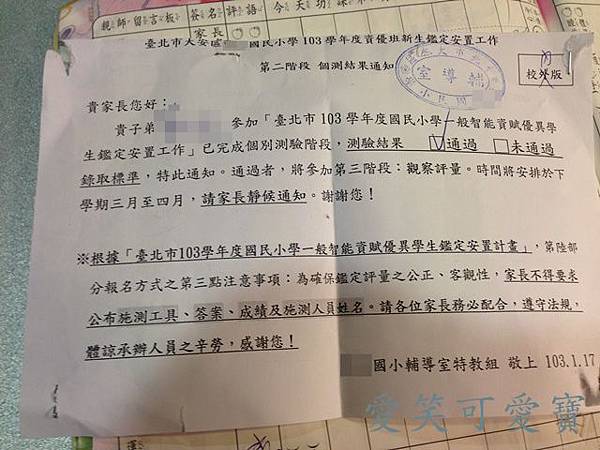 親師留言板 簽名評語 今天功課
家長
臺北市大安區 國民小學 103 學年度資優班新生鑑定安置工作
第二階段 個測結果通知
輔導室
校內版
貴家長您好：
貴子弟 參加「臺北市 103 學年度國民小學一般智能資賦優異學
生鑑定安置工作」已完成個別測驗階段，測驗結果 ☑通過 □未通過
錄取標準，特此通知。通過者，將參加第三階段：觀察評量。時間將安排於下
學期三月至四月，請家長靜候通知。謝謝您！
※根據「臺北市103學年度國民小學一般智能資賦優異學生鑑定安置計畫」，第陸部
分報名方式之第三點注意事項：為確保鑑定評量之公正、客觀性，家長不得要求
公布施測工具、答案、成績及施測人員姓名。請各位家長務必配合，遵守法規，
體諒承辦人員之辛勞，感謝您！
國小輔導室特教組 敬上 103.1.17
愛笑可愛寶